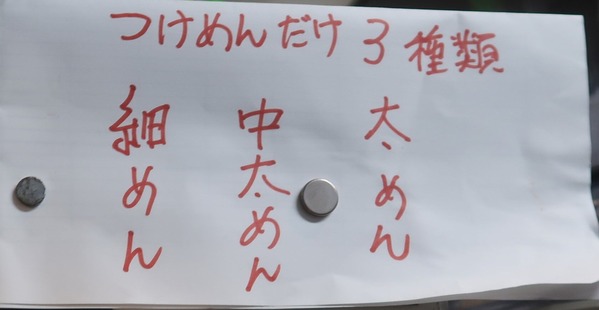 つけめんだけ3種類
太めん
中太めん
細めん